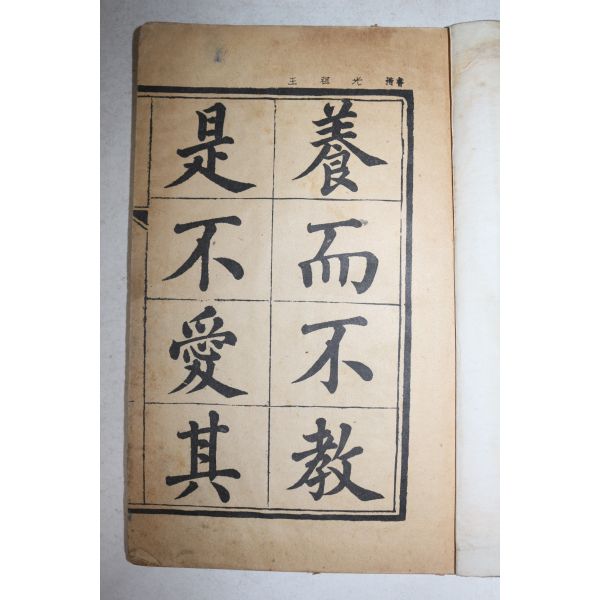 王祖光 楷書
養而不教
是不愛其